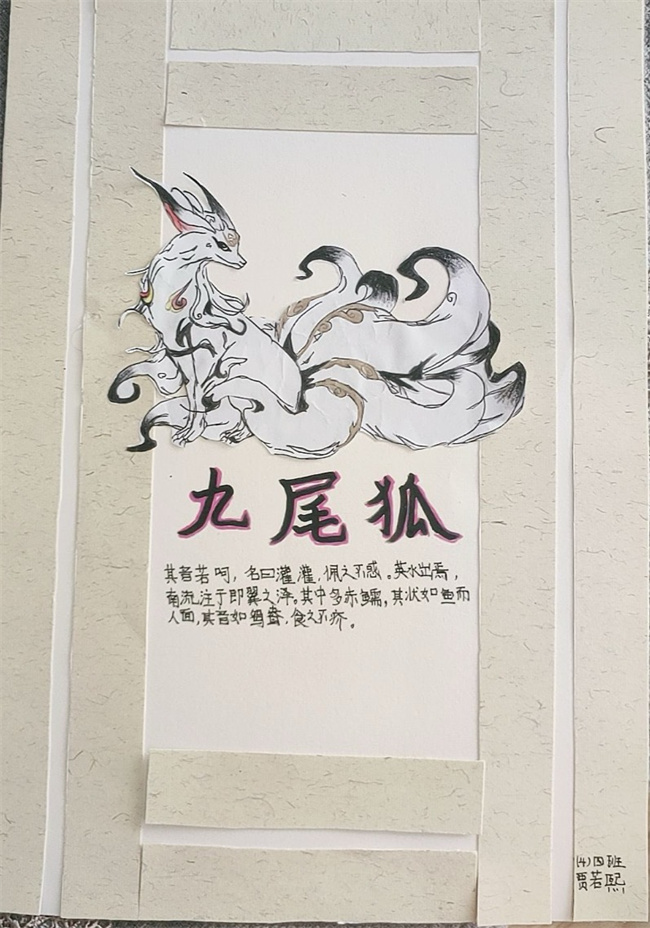 九尾狐
其音若呵，名曰灌灌，佩之不惑。英水出焉，
南流注于即翼之泽。其中多赤鱬，其状如鱼而
人面，其音如鸳鸯，食之不疥。
(4)四班
贾若熙